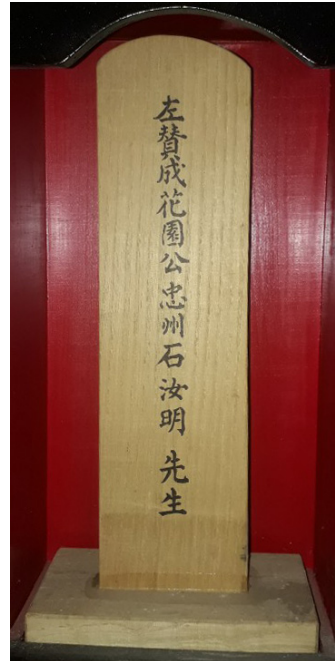 左賛成花園公忠州石汝明 先生